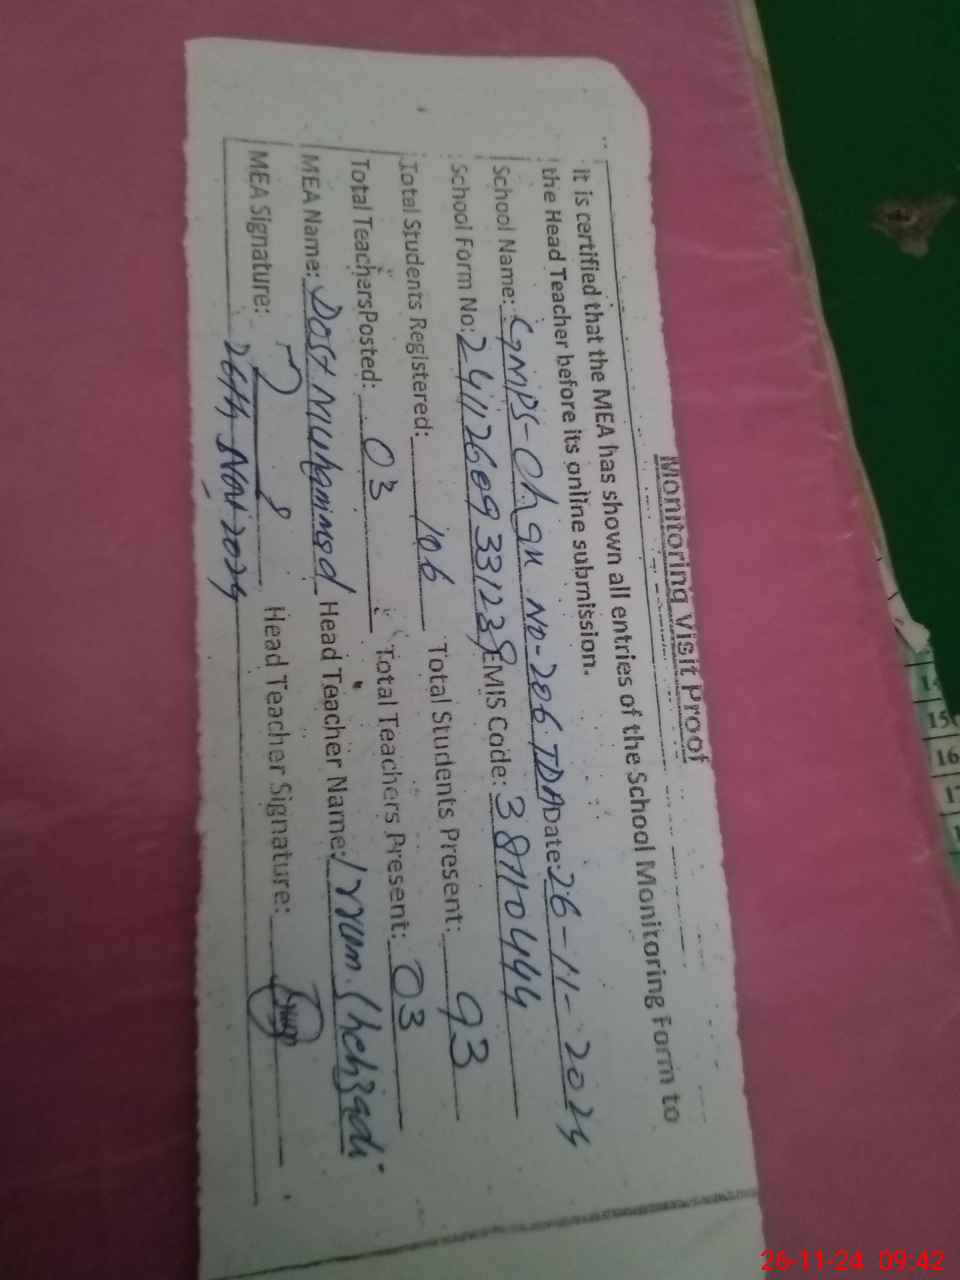 Monitoring Visit Proof
It is certified that the MEA has shown all entries of the School Monitoring Form to
the Head Teacher before its online submission.
School Name: GMPS-Chak No-206 TDA Date: 26-11-2024
School Form No: 2411260933123 EMIS Code: 38110444
Total Students Registered: 106 Total Students Present: 93
Total Teachers Posted: 03 Total Teachers Present: 03
MEA Name: Dost Muhammad Head Teacher Name: Irrum
MEA Signature: Head Teacher Signature:
26th Nov 2024
15
16
26-11-24 09:42